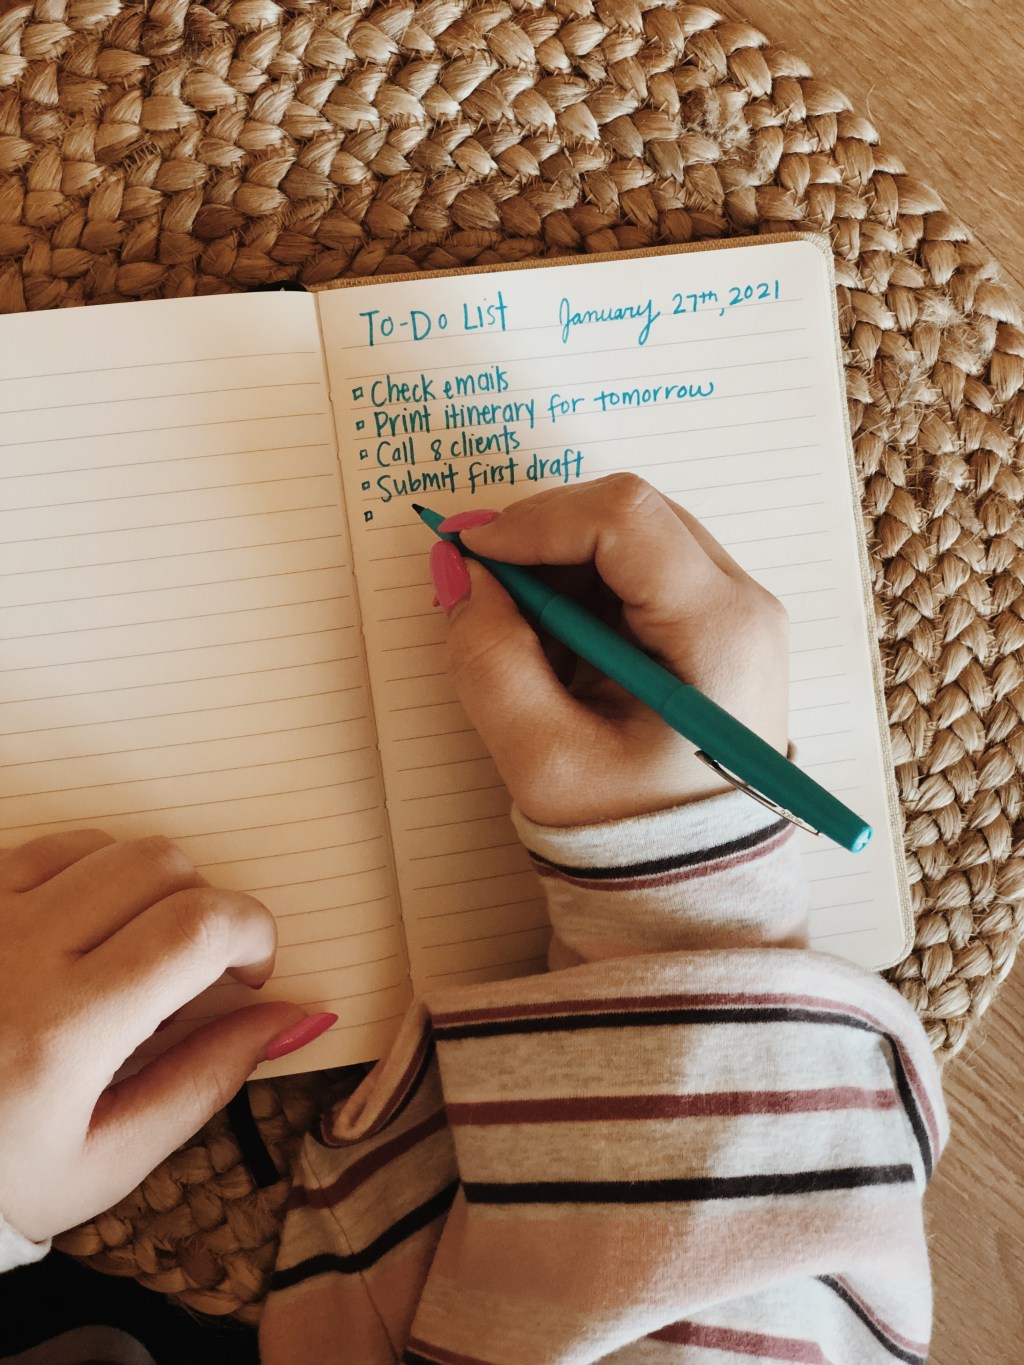 To-Do List January 27th, 2021
Check emails
Print itinerary for tomorrow
Call 8 clients
Submit first draft